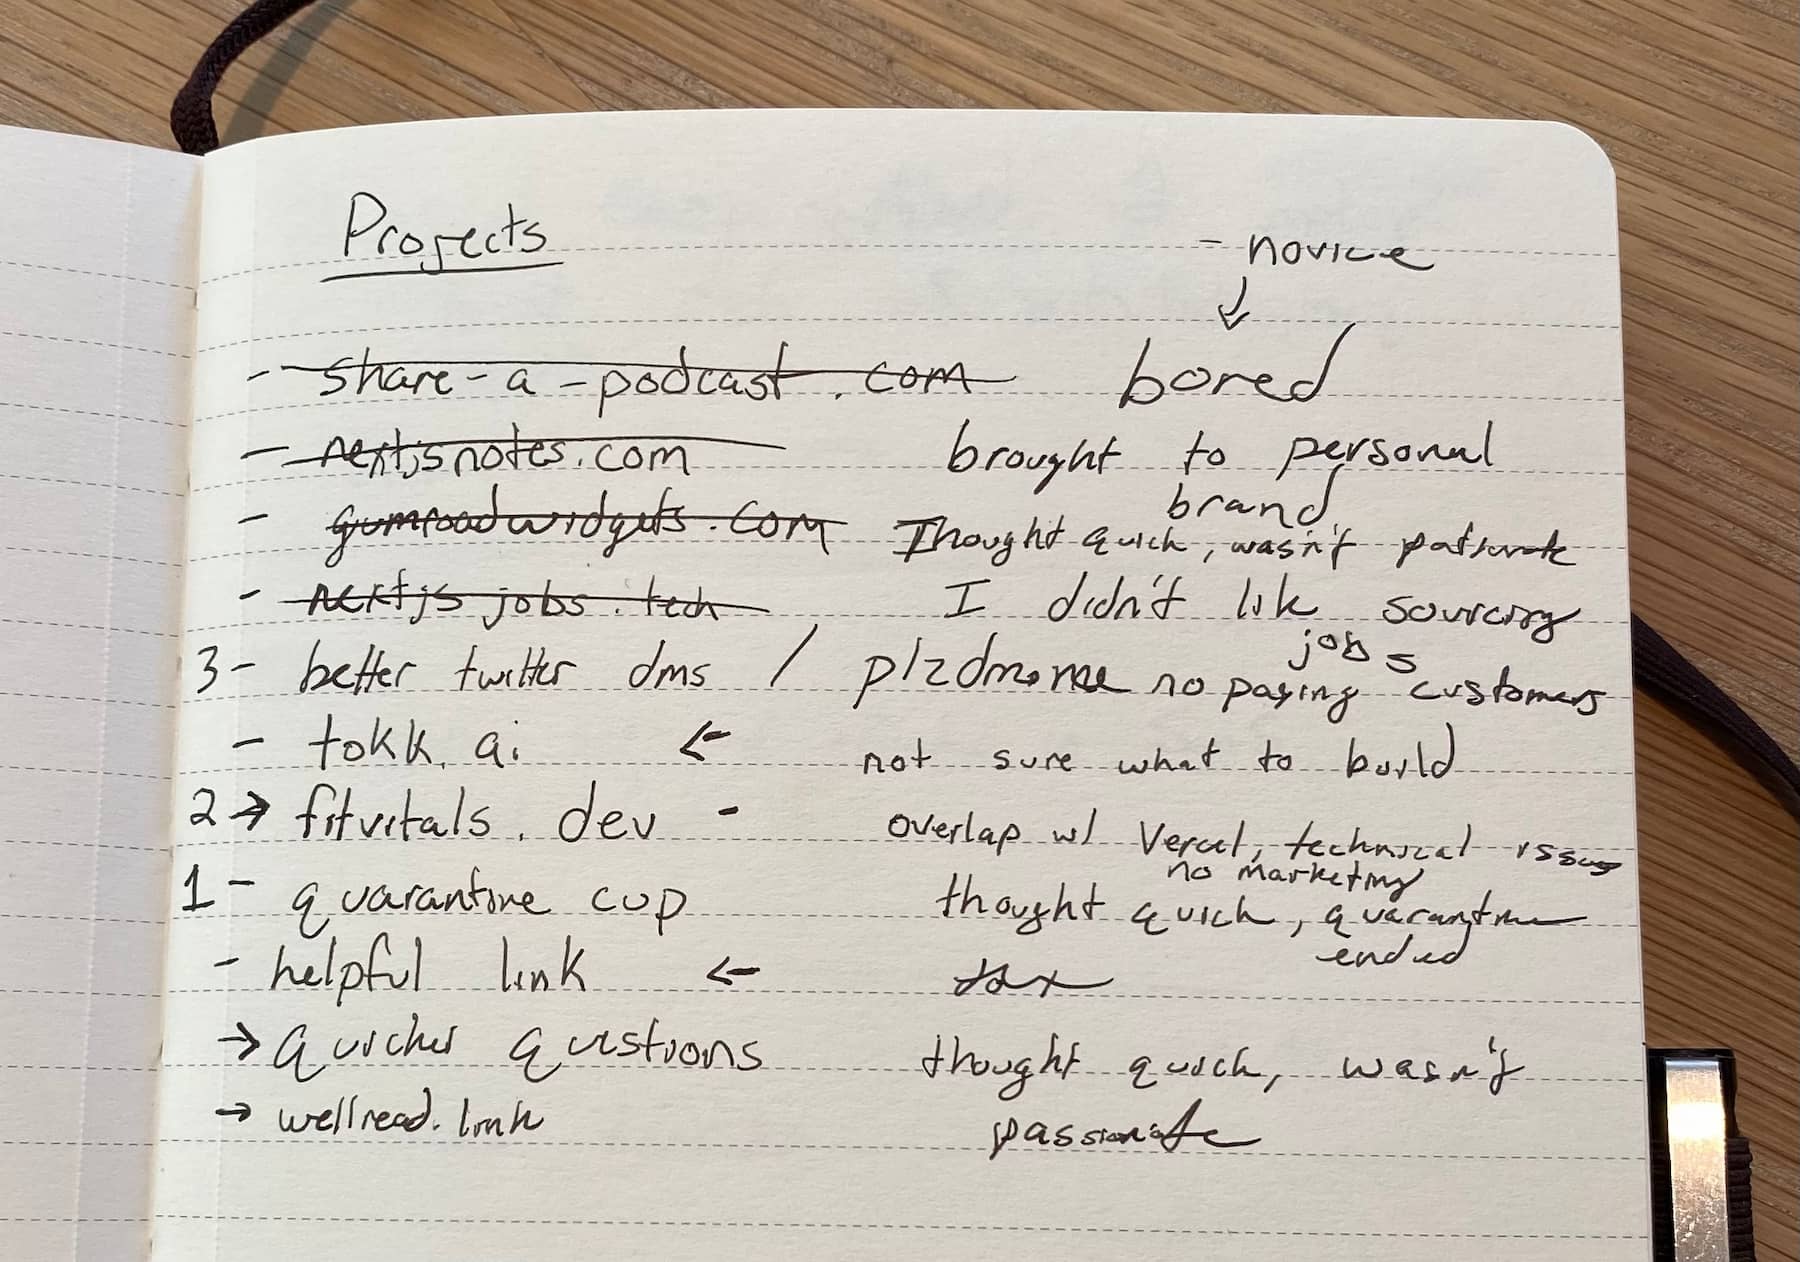 Projects
- novice
↓
- share-a-podcast.com bored
- nextjsnotes.com brought to personal
brand
- gumroadwidgets.com Thought quick, wasn't
- nextjs jobs.tech I didn't lik sourcing
jobs
3- better twitter dms / plzdmme no paying customers
- tokk.ai ← not sure what to build
2→ fitvitals.dev - overlap w/ Vercel, technical issues
no marketing
1- quarantine cup thought quick, quarantine
ended
- helpful link ←
→ quicker questions thought quick, wasn't
passionate
→ wellread.link